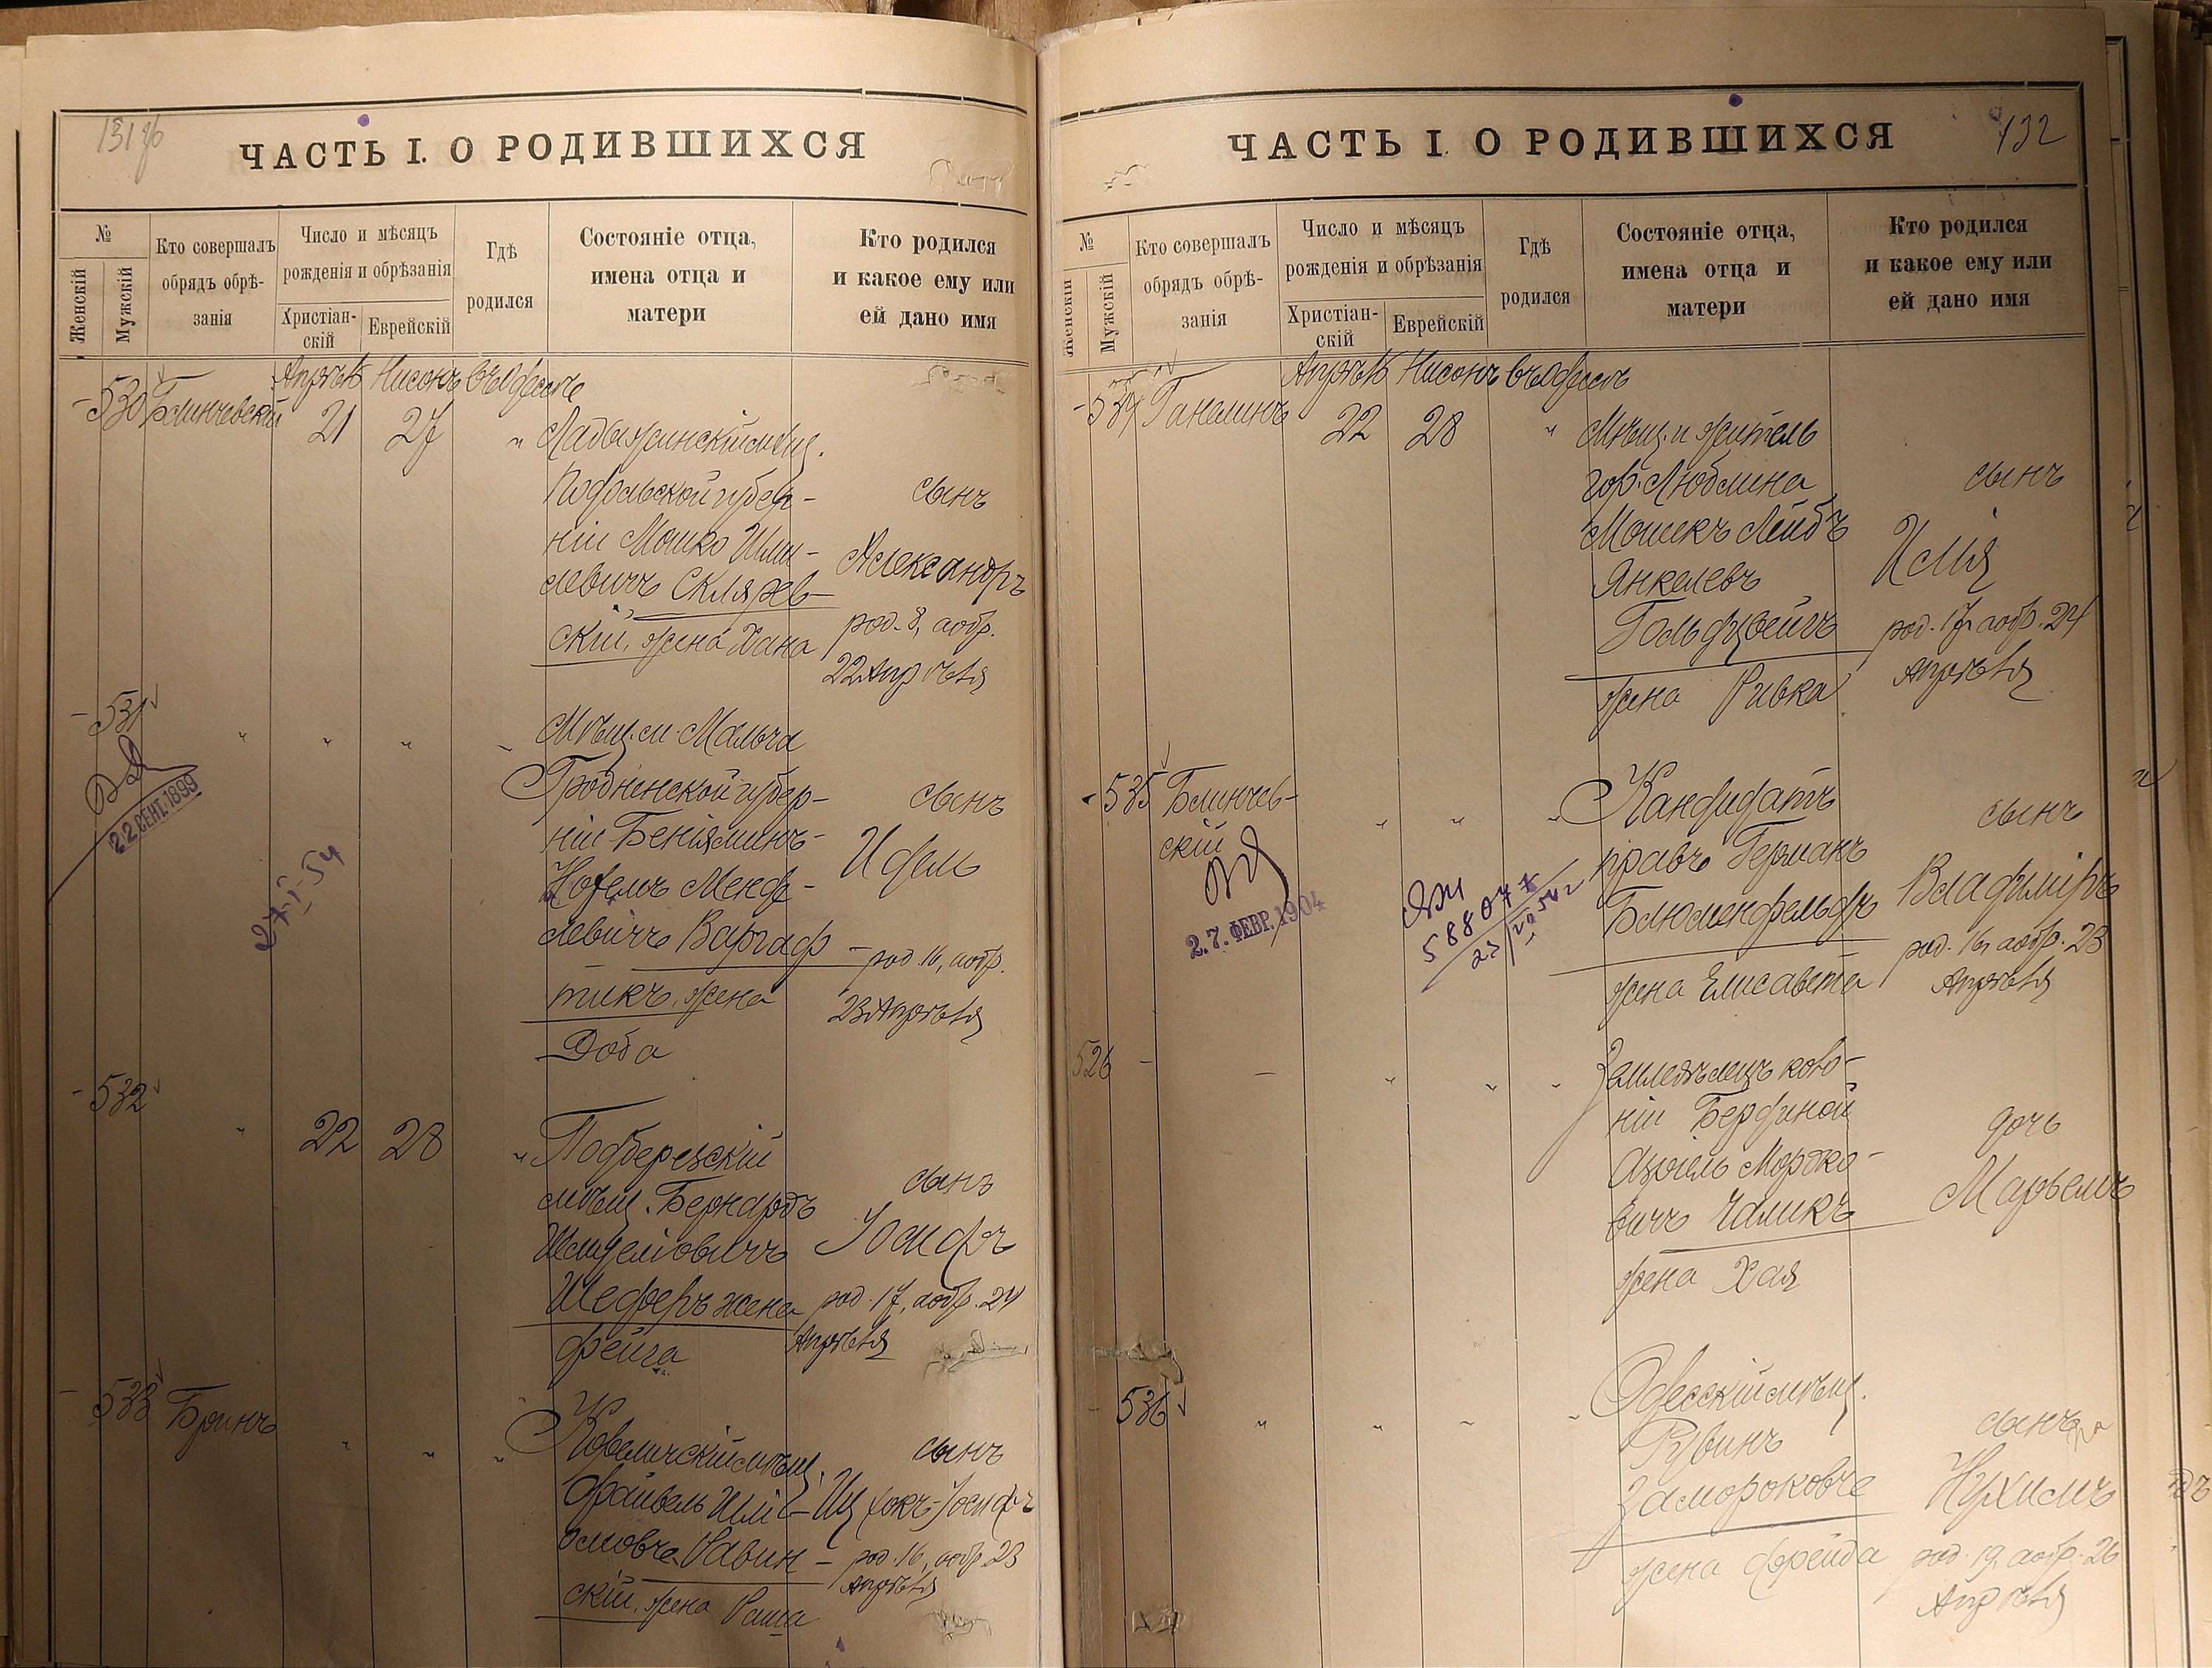 131 об
ЧАСТЬ I. О РОДИВШИХСЯ
№
Женскій
Мужскій
Кто совершалъ
обрядъ обрѣ-
занія
Число и мѣсяцъ
рожденія и обрѣзанія
Христіан-
скій
Еврейскій
Гдѣ
родился
Состояніе отца,
имена отца и
матери
Кто родился
и какое ему или
ей дано имя
Апрѣль Нисонъ въ Одессѣ
530 Блинчевскій 21 27 " Ладыжинскій мѣщ.
Подольской губер-
ніи Мошко Шми-
левичъ Скляров-
скій, жена Хана
сынъ
Александръ
род. 8, а обр.
22 Апрѣля
531 " " " " Мѣщ. м. Мальча
Гродненской губер-
ніи Беніяминъ-
Нотелъ Менде-
левичъ Варгаф-
тикъ, жена
Доба
сынъ
Идель
род. 16, а обр.
23 Апрѣля
22 СЕНТ. 1899
27-I-54
532 " 22 28 " Подберезскій
мѣщ. Бернардъ
Шефферъ жена
Фейга
сынъ
Іосифъ
род. 17, а обр. 24
Апрѣля
533 Бринъ " " " Ковеличскій мѣщ.
Файвель Шлі-
омовъ Равин-
скій, жена Раша
сынъ
Ицхокъ-Іосифъ
род. 16, а обр. 23
Апрѣля
132
ЧАСТЬ I. О РОДИВШИХСЯ
№
Женскій
Мужскій
Кто совершалъ
обрядъ обрѣ-
занія
Число и мѣсяцъ
рожденія и обрѣзанія
Христіан-
скій
Еврейскій
Гдѣ
родился
Состояніе отца,
имена отца и
матери
Кто родился
и какое ему или
ей дано имя
Апрѣль Нисонъ въ Одессѣ
534 Ганелинъ 22 28 " Мѣщ. и житель
гор. Люблина
Мошекъ Лейбъ
Янкелевъ
Гольдцвейгъ
жена Ривка
сынъ
Илія
род. 17, а обр. 24
Апрѣля
535 Блинчев-
скій
" " " Кандидатъ
правъ Германъ
Блюменфельдъ
жена Елисавета
сынъ
Владиміръ
род. 16, а обр. 23
Апрѣля
27. ФЕВР. 1904
526 - - " " " Земледѣлецъ коло-
ніи
Азріель Мордко-
вичъ Чаликъ
жена Хая
дочь
Марьемъ
536 " " " " Одесскій мѣщ.
Рувинъ
Замороковъ
жена Фрейда
сынъ
Нухимъ
род. 19, а обр. 26
Апрѣля